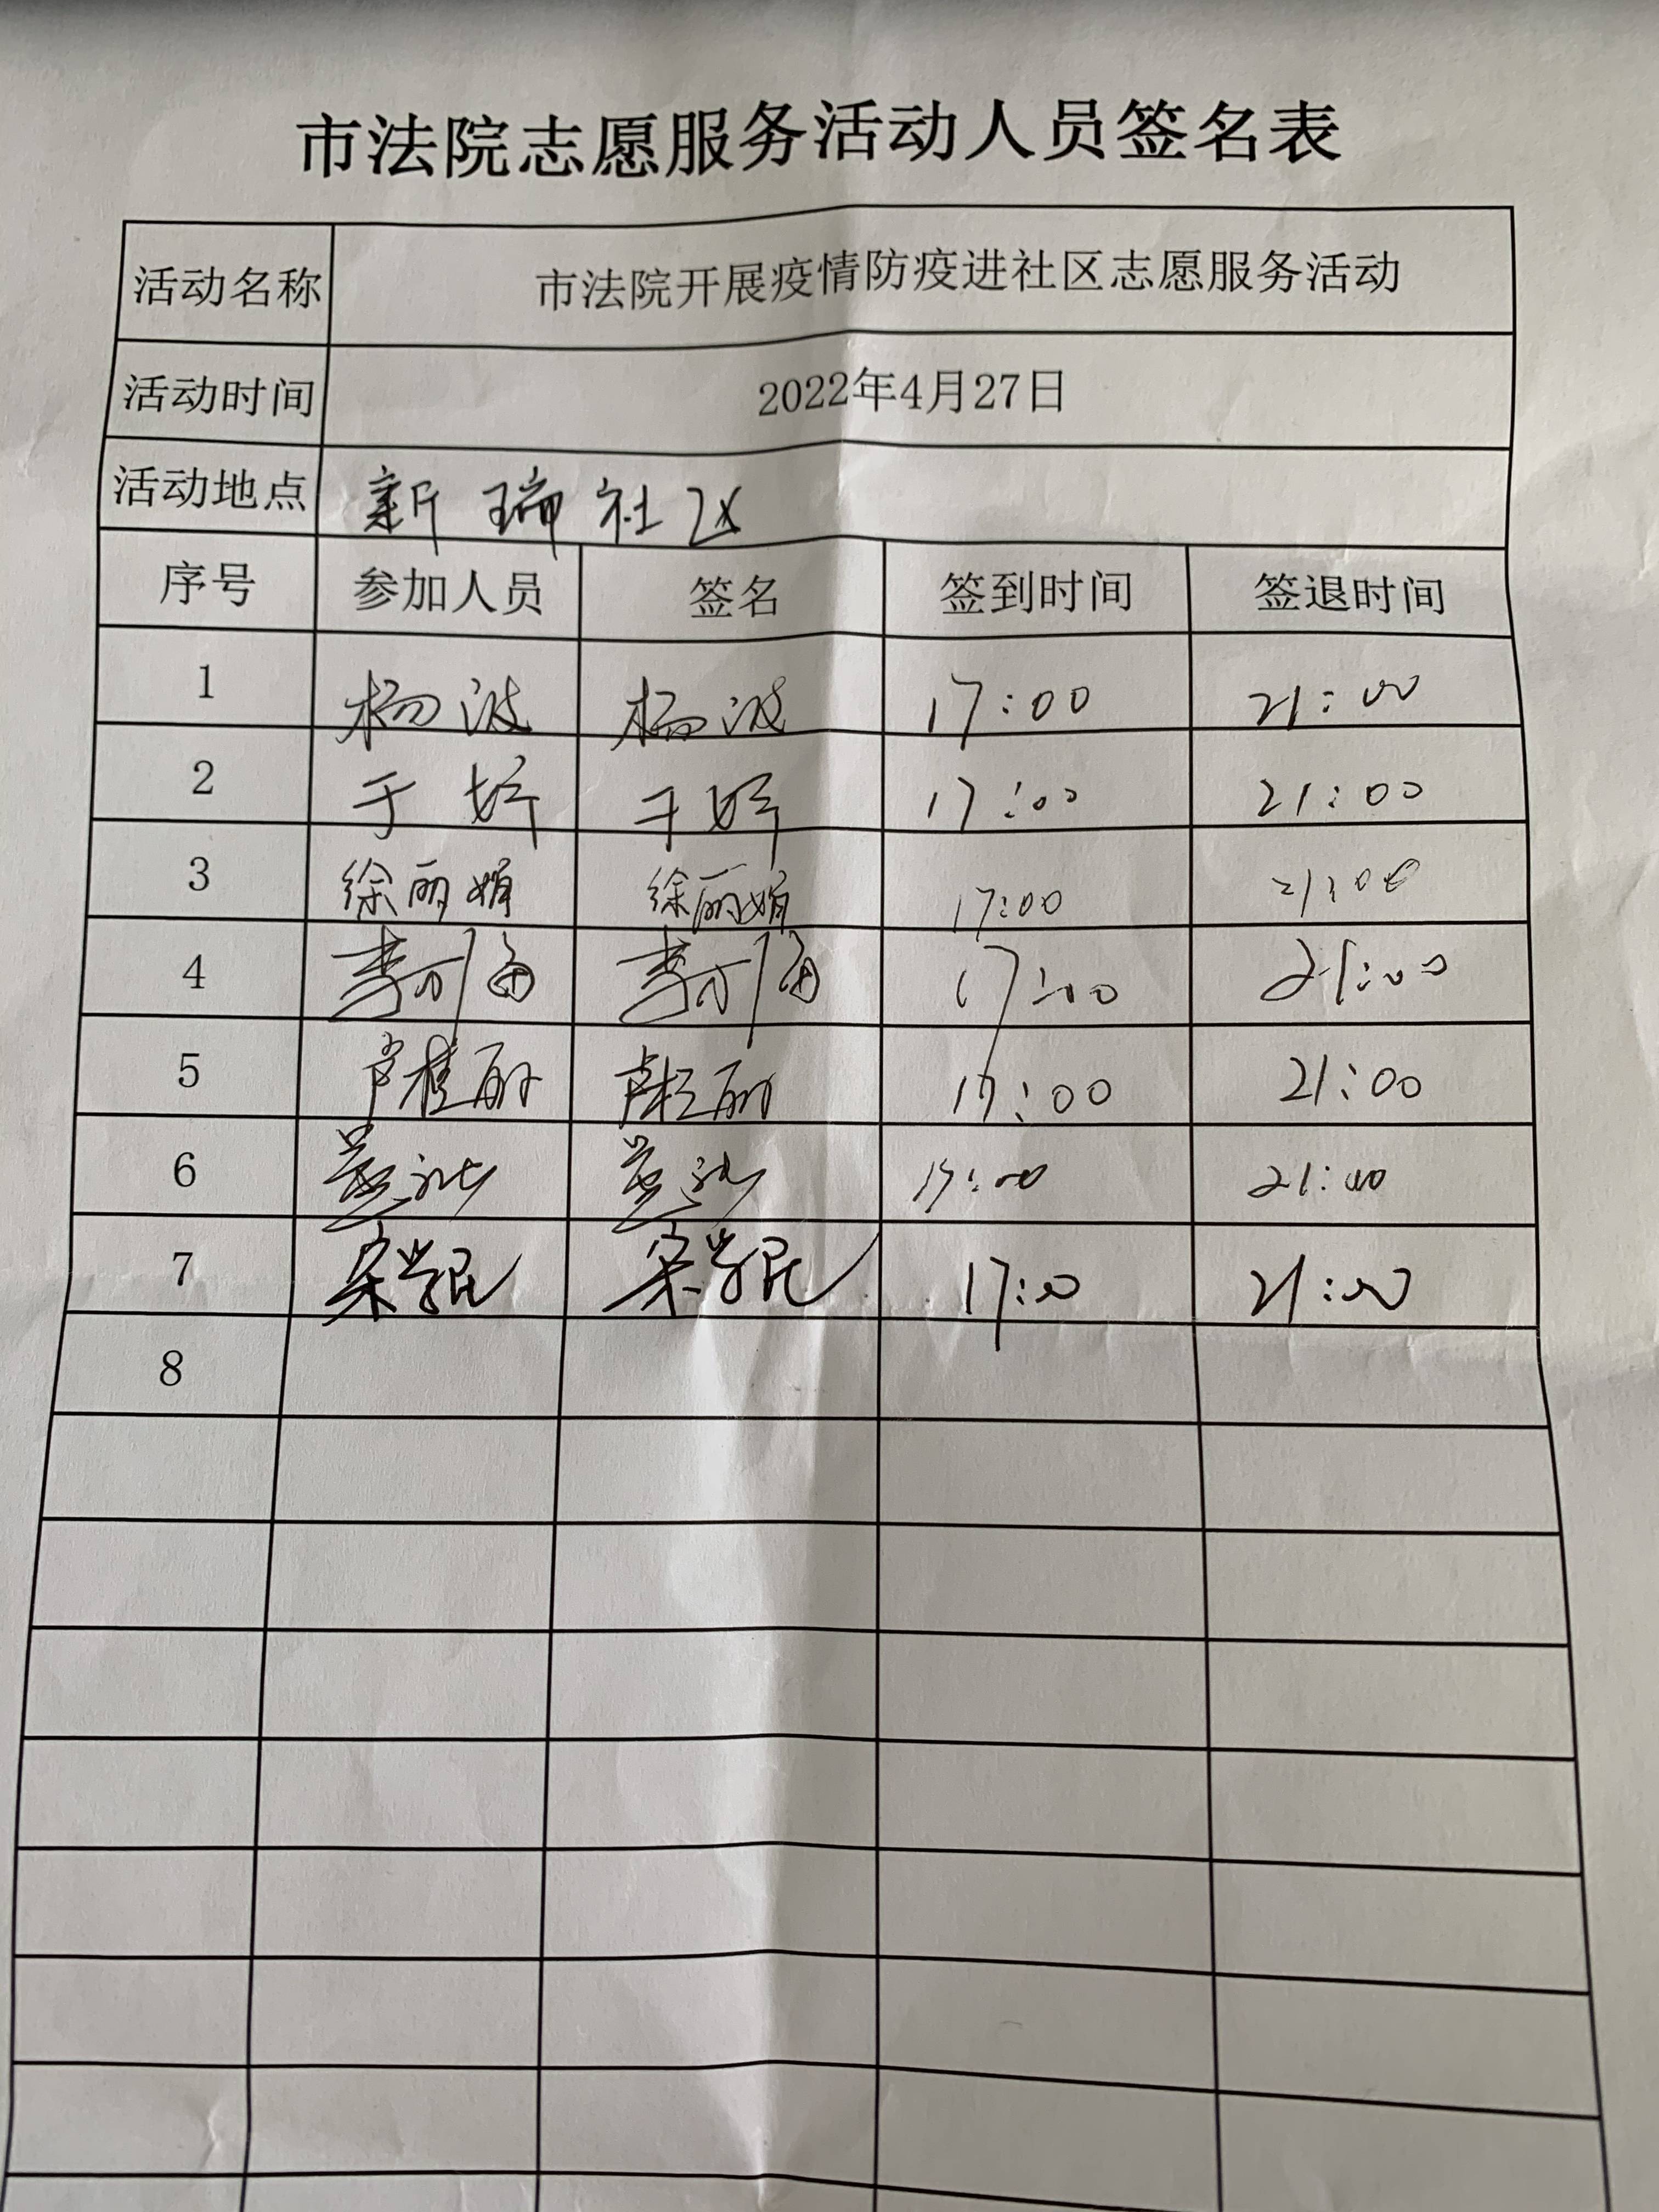 市法院志愿服务活动人员签名表
活动名称 市法院开展疫情防疫进社区志愿服务活动
活动时间 2022年4月27日
活动地点 新瑞社区
序号 参加人员 签名 签到时间 签退时间
1 杨波 杨波 17:00 21:00
2 于婷 于婷 17:00 21:00
3 徐丽娟 徐丽娟 17:00 21:00
4 李 李 17:00 21:00
5 卢桂丽 卢桂丽 17:00 21:00
6 17:00 21:00
7 宋学昆 宋学昆 17:00 21:00
8